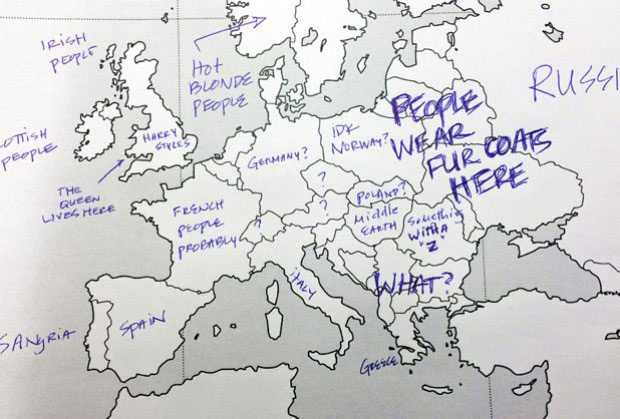 IRISH
PEOPLE
HOT
BLONDE
PEOPLE
RUSSI
OTTISH
PEOPLE
HARRY
STYLES
THE
QUEEN
LIVES HERE
GERMANY?
IDK
NORWAY?
PEOPLE
WEAR
FUR COATS
HERE
?
POLAND?
FRENCH
PEOPLE
PROBABLY
?
?
Middle
EARTH
Something
WITH A
"Z"
ITALY
WHAT?
SANGRIA
SPAIN
GREECE